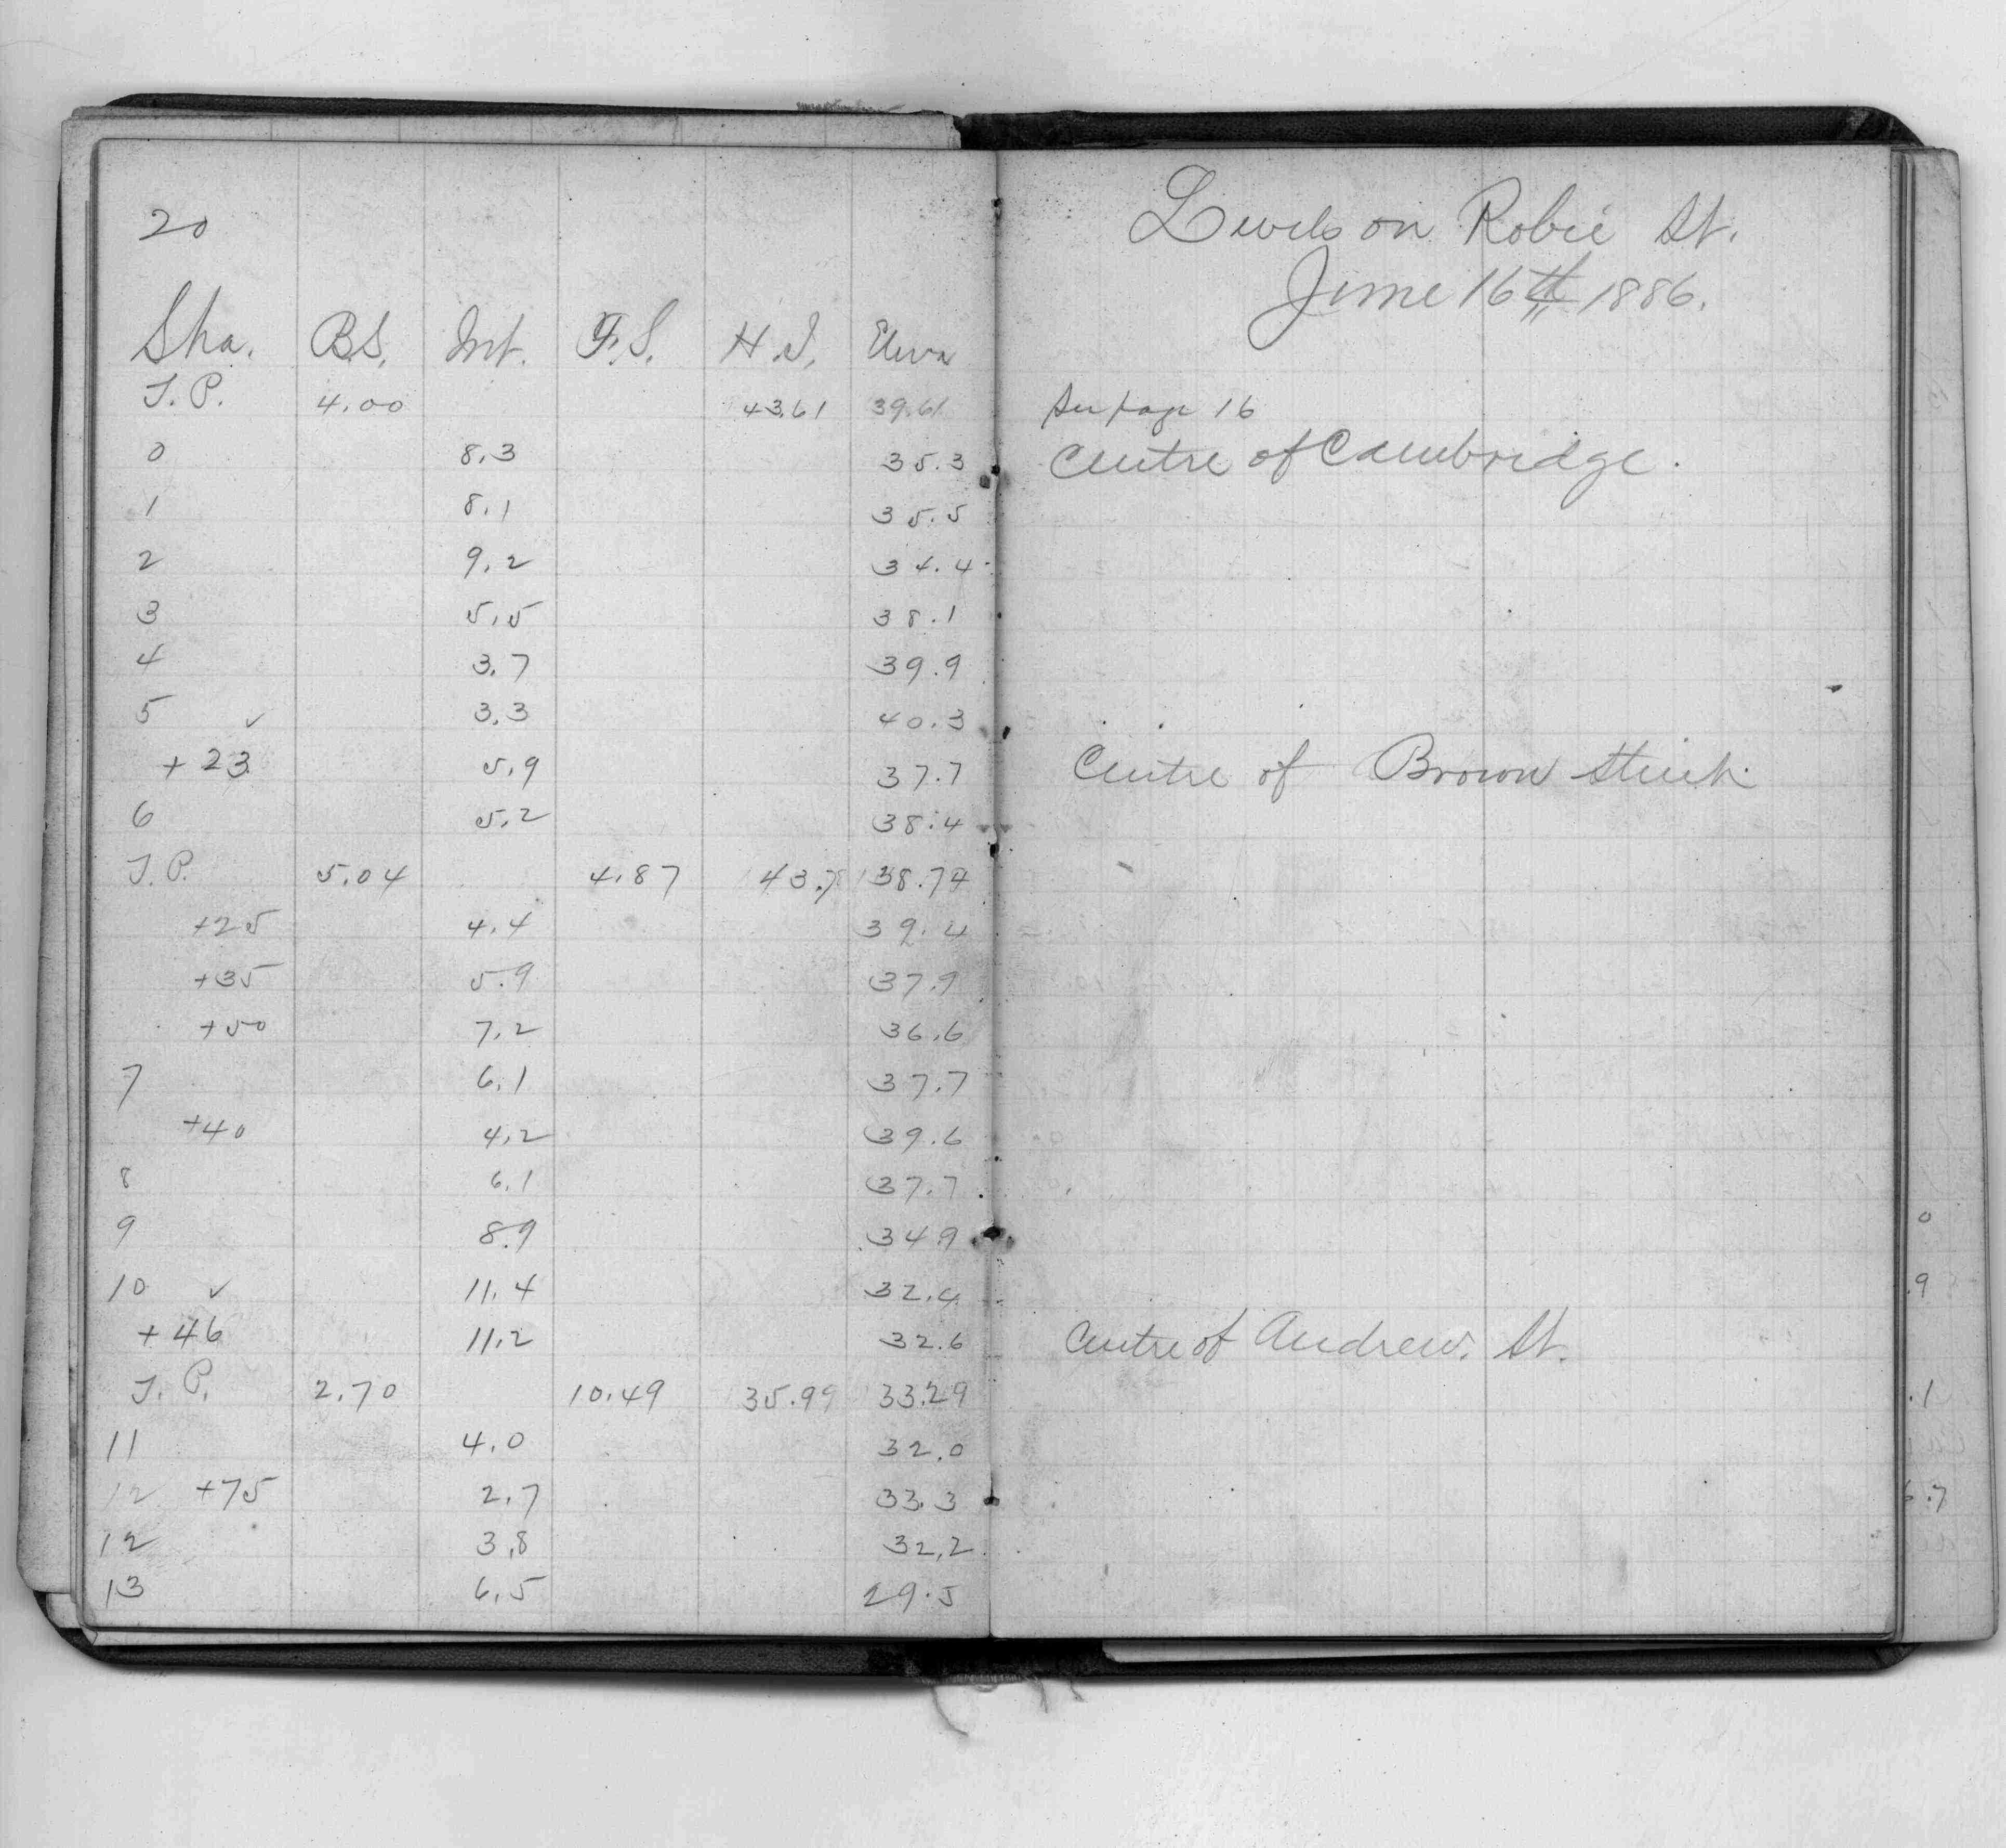 20
Sta. B.S. Int. F.S. H.I. Eleva
T.P. 4.00 43.61 39.61
0 8.3 35.3
1 8.1 35.5
2 9.2 34.4
3 5.5 38.1
4 3.7 39.9
5 ✓ 3.3 40.3
+23 5.9 37.7
6 5.2 38.4
T.P. 5.04 4.87 43.78 38.74
+25 4.4 39.4
+35 5.9 37.9
+50 7.2 36.6
7 6.1 37.7
+40 4.2 39.6
8 6.1 37.7
9 8.9 34.9
10 ✓ 11.4 32.4
+46 11.2 32.6
T.P. 2.70 10.49 35.99 33.29
11 4.0 32.0
12 +75 2.7 33.3
12 3.8 32.2
13 6.5 29.5
Levels on Robie St.
June 16th 1886.
See page 16
Centre of Cambridge.
Centre of Brown Street
Centre of Andrew. St.
0
.9
.1
6.7